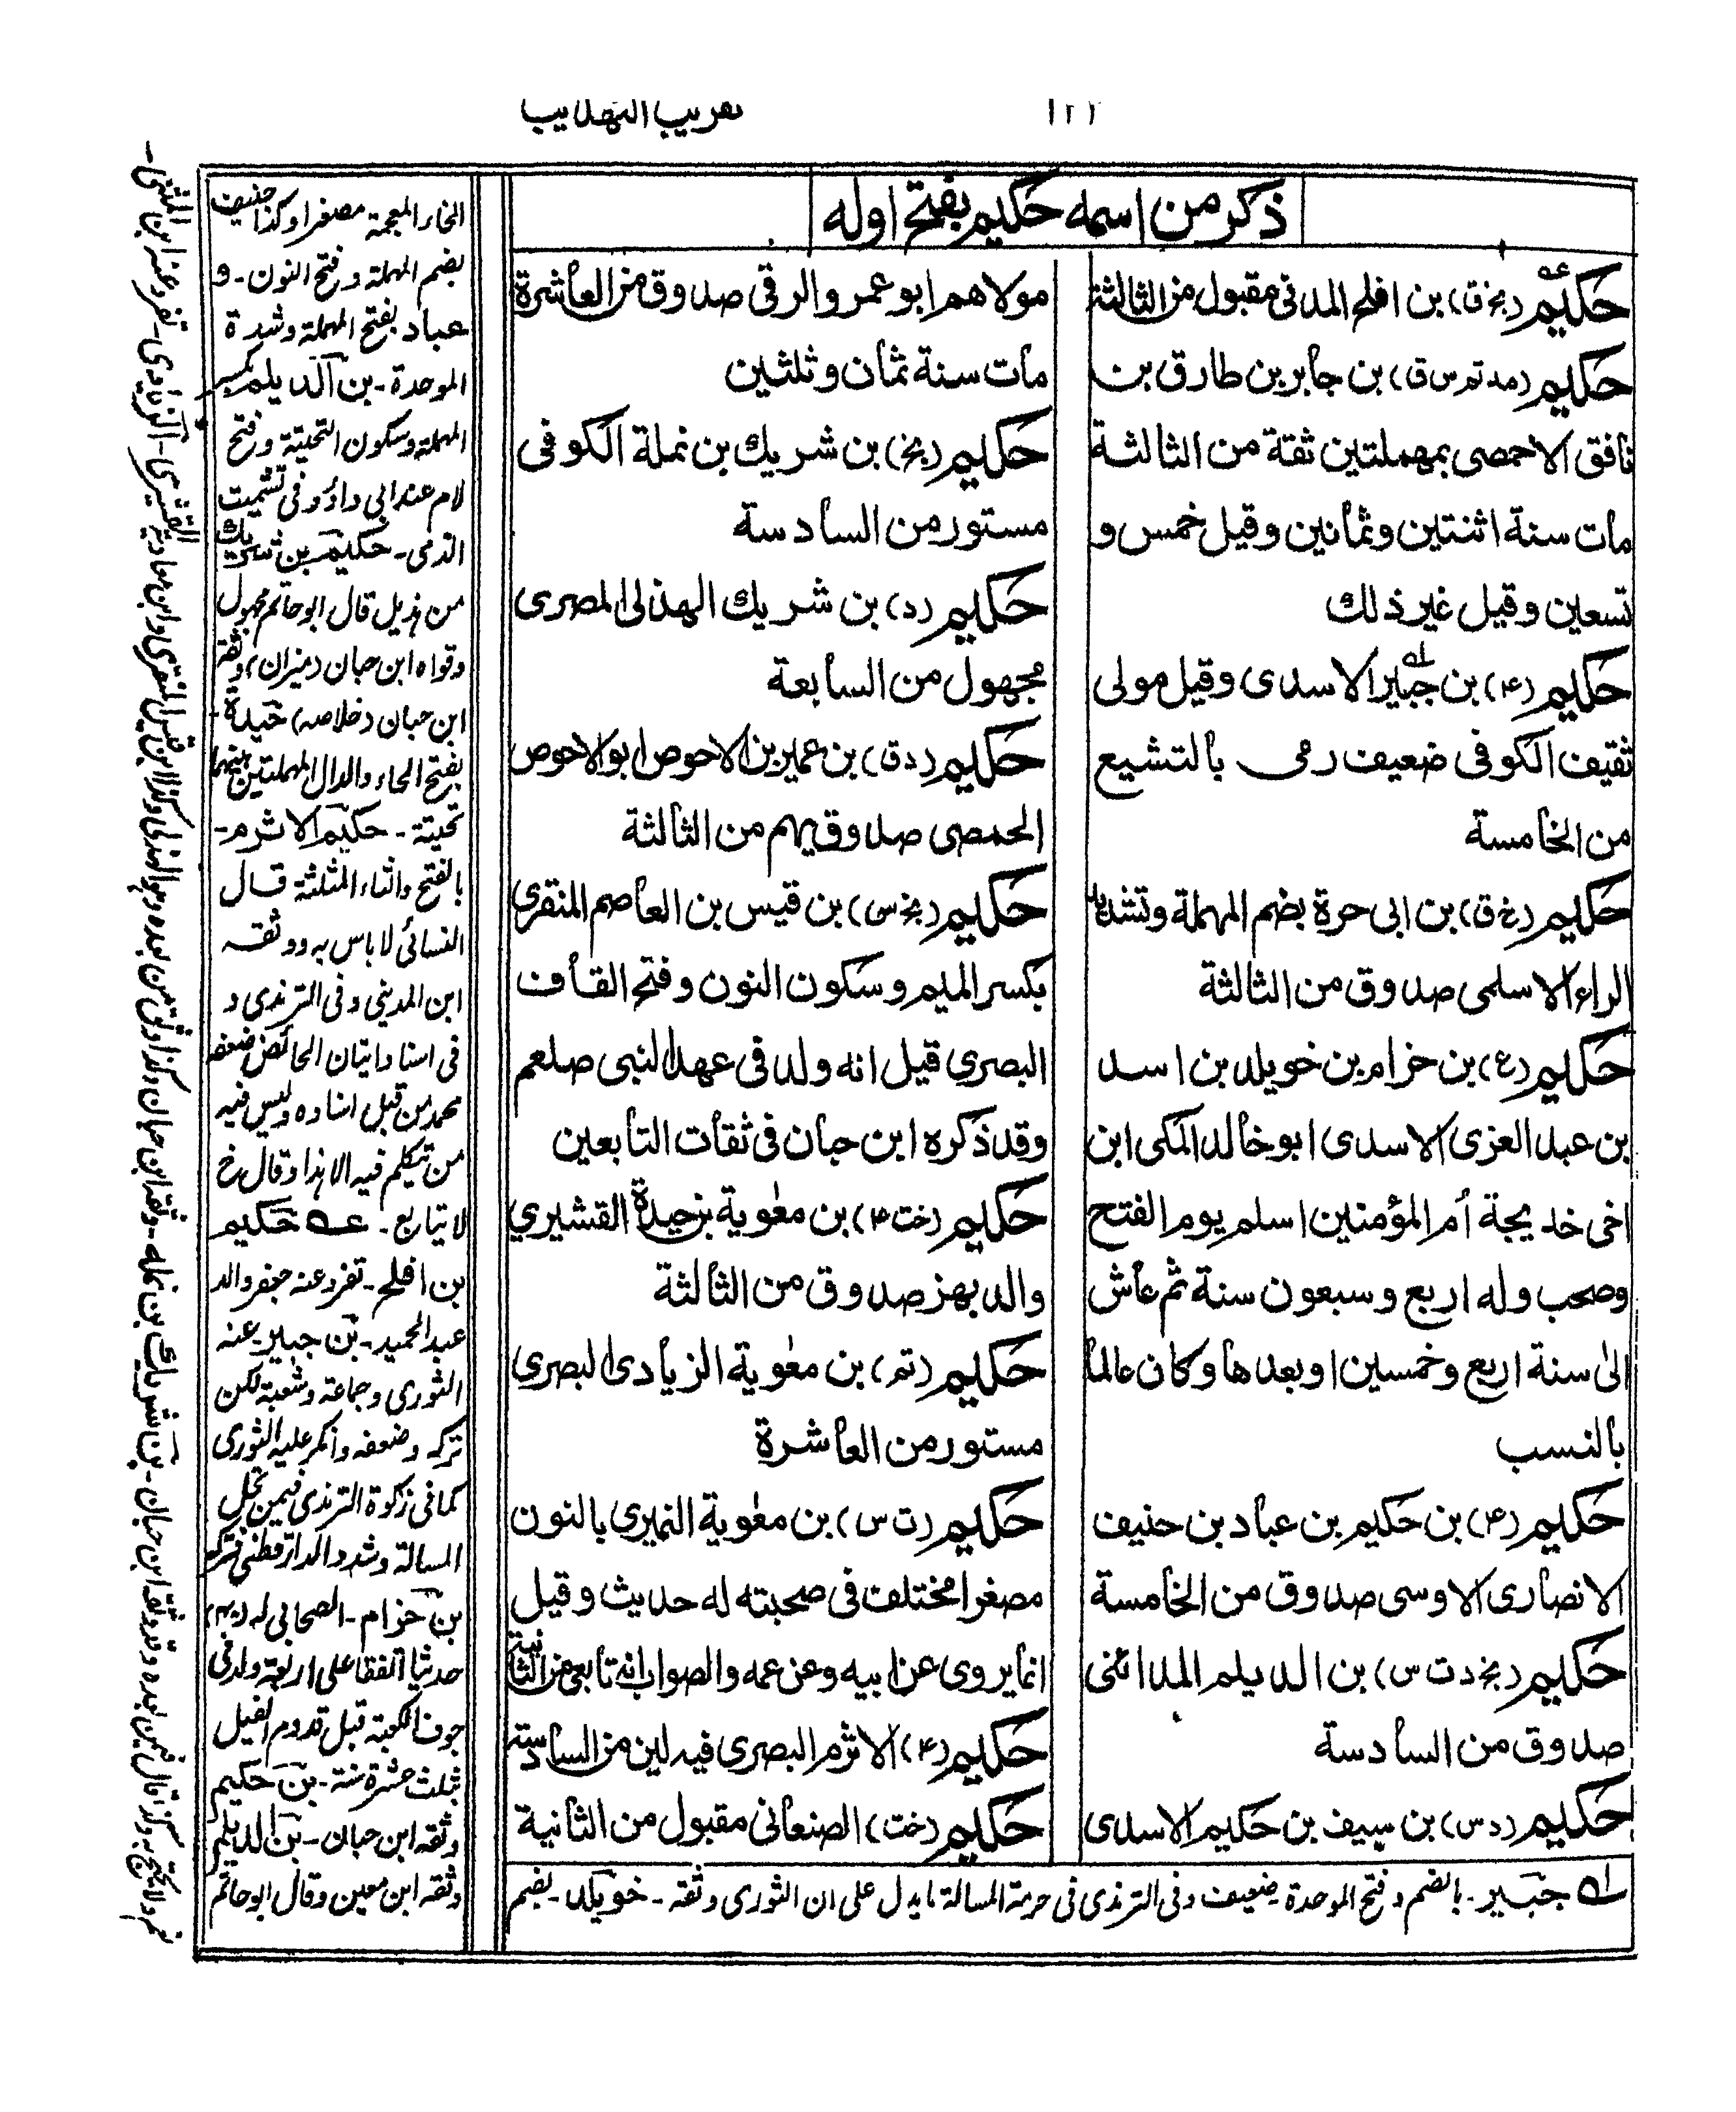 تقريب التهذيب
١٢٢
ذكر من اسمه حكيم بفتح اوله
حكيم (بخ ق) بن افلح المدنى مقبول من الثالثة
حكيم (مد تم س ق) بن جابر بن طارق بن
الاحمصى بمهملتين ثقة من الثالثة
مات سنة اثنتين وثمانين وقيل خمس و
تسعين وقيل غير ذلك
حكيم (۴) بن جبير الاسدى وقيل مولى
ثقيف الكوفى ضعيف رمى بالتشيع
من الخامسة
حكيم (خ ق) بن ابى حرة بضم المهملة وتشديد
الراء الاسلمى صدوق من الثالثة
حكيم (ع) بن حزام بن خويلد بن اسد
بن عبد العزى الاسدى ابو خالد المكى ابن
اخى خديجة أم المؤمنين اسلم يوم الفتح
وصحب وله اربع وسبعون سنة ثم عاش
الىٰ سنة اربع وخمسين او بعدها وكان عالما
بالنسب
حكيم (۴) بن حكيم بن عباد بن حنيف
الانصارى الاوسى صدوق من الخامسة
حكيم (بخ د ت س) بن الديلم المدائنى
صدوق من السادسة
حكيم (د س) بن سيف بن حكيم الاسدى
مولاهم ابو عمرو الرقى صدوق من العاشرة
مات سنة ثمان وثلثين
حكيم (بخ) بن شريك بن نملة الكوفى
مستور من السادسة
حكيم (د) بن شريك الهذلى المصرى
مجهول من السابعة
حكيم (د ق) بن عمير بن الاحوص ابو الاحوص
الحمصى صدوق يهم من الثالثة
حكيم (بخ س) بن قيس بن العاصم المنقرى
بكسر الميم وسكون النون وفتح القاف
البصرى قيل انه ولد فى عهد النبى صلعم
وقد ذكره ابن حبان فى ثقات التابعين
حكيم (خت ۴) بن معٰوية بن حيدة القشيري
والد بهز صدوق من الثالثة
حكيم (تم) بن معٰوية الزيادى البصري
مستور من العاشرة
حكيم (ت س) بن معٰوية النميري بالنون
مصغرا مختلف فى صحبته له حديث وقيل
انما يروى عن ابيه وعن عمه والصواب انه تابعى من الثانية
حكيم (۴) الاثرم البصرى فيه لين من السادسة
حكيم (خت) الصنعانى مقبول من الثانية
له جبير ـ بالضم وفتح الموحدة ضعيف وفى الترمذى فى حرمة المسالة ما يدل على ان الثورى وثقه ـ خويلد ـ بضم
الخاء المعجمة مصغرا وكذا حنيف
بضم المهملة وفتح النون ـ و
عباد بفتح المهملة وشدة
الموحدة ـ بن الديلم بكسر
المهملة وسكون التحيتة وفتح
لام عند ابى داؤد فى تشميت
الذمى ـ حكيم بن شريك
من هذيل قال ابو حاتم مجهول
وقواه ابن حبان (ميزان) وثقه
ابن حبان (خلاصه) حيدة ـ
بفتح الحاء والدال المهملتين بينهما
تحيتة ـ حكيم الاثرم ـ
بالفتح والثاء المثلثة قال
النسائى لا باس به ووثقه
ابن المدينى وفى الترمذى و
فى اسناد اتيان الحائض ضعفه
محمد من قبل اسناده وليس فيه
من تيكلم فيه الا هذا وقال خ
لا تيابع ـ عه حكيم
بن افلح ـ تفرد عنه جعفر والد
عبد الحميد ـ بن جبير ـ عنه
الثورى وجماعة وشعبة لكن
تركه وضعفه وانكر عليه الثورى
كما فى زكوة الترمذى فيمن تحل
المسالة وشدد الدارقطنى فتركه
بن حزام ـ الصحابى له (بهم)
حديثا اتفقا على اربعة ولد فى
جوف الكعبة قبل قدوم الفيل
بثلث عشرة سنة ـ بن حكيم
وثقه ابن حبان ـ بن الديلم
وثقه ابن معين وقال ابو حاتم